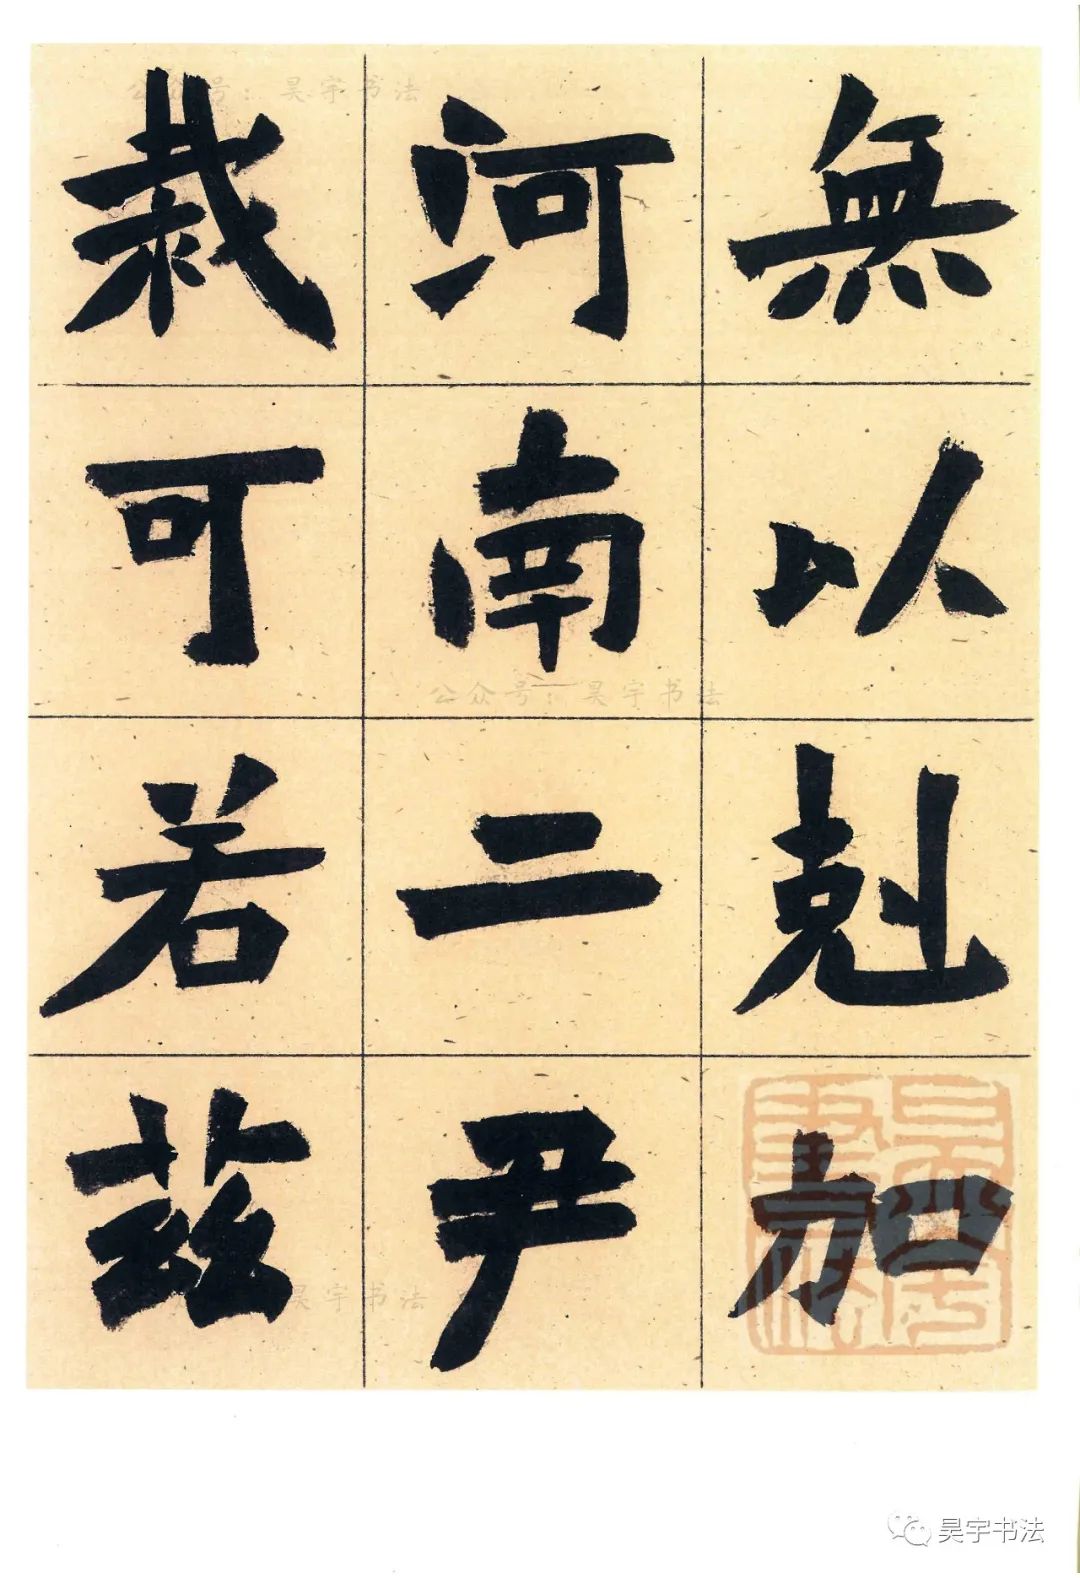 無以剋加
河南二尹
裁可若茲
公众号：昊宇书法
公众号：昊宇书法
昊宇书法
昊宇书法